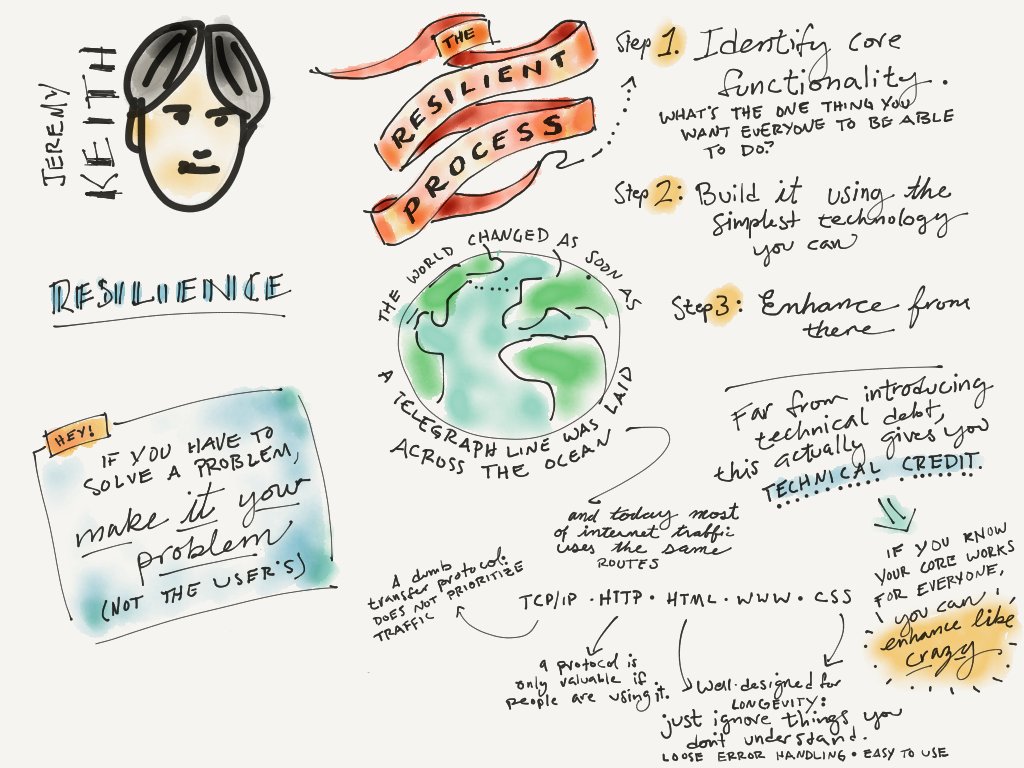 JEREMY
KEITH
RESILIENCE
HEY!
IF YOU HAVE TO
SOLVE A PROBLEM,
make it your
problem
(NOT THE USER'S)
THE
RESILIENT
PROCESS
Step 1. Identify core
functionality.
WHAT'S THE ONE THING YOU
WANT EVERYONE TO BE ABLE
TO DO?
Step 2: Build it using the
simplest technology
you can
Step 3: Enhance from
there
THE WORLD CHANGED AS SOON AS
A TELEGRAPH LINE WAS LAID
ACROSS THE OCEAN
and today most
of internet traffic
uses the same
ROUTES
Far from introducing
technical debt,
this actually gives you
TECHNICAL CREDIT.
IF YOU KNOW
YOUR CORE WORKS
FOR EVERYONE,
you can
enhance like
crazy
TCP/IP • HTTP • HTML • WWW • CSS
A dumb
transfer protocol:
DOES NOT PRIORITIZE
TRAFFIC
a protocol is
only valuable if
people are using it.
Well-designed for
LONGEVITY:
just ignore things you
don't understand.
LOOSE ERROR HANDLING • EASY TO USE